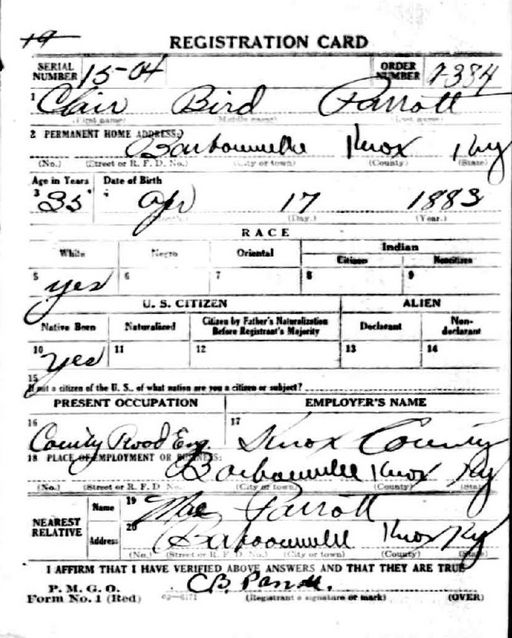 19
REGISTRATION CARD
SERIAL NUMBER 1504 ORDER NUMBER
1 Clair Bird Parrott
(First name) (Middle name) (Last name)
2 PERMANENT HOME ADDRESS:
Barbourville Knox Ky
(No.) (Street or R. F. D. No.) (City or town) (County) (State)
Age in Years Date of Birth
3 35 4 Apr 17 1883
(Day.) (Year.)
RACE
White Negro Oriental Indian
Citizen Noncitizen
5 yes 6 7 8 9
U. S. CITIZEN ALIEN
Native Born Naturalized Citizen by Father's Naturalization Before Registrant's Majority Declarant Non-declarant
10 yes 11 12 13 14
15
If not a citizen of the U. S., of what nation are you a citizen or subject?
PRESENT OCCUPATION EMPLOYER'S NAME
16 County Road Eng. 17 Knox County
18 PLACE OF EMPLOYMENT OR BUSINESS:
Barbourville Knox Ky
(No.) (Street or R. F. D. No.) (City or town) (County) (State)
NEAREST RELATIVE
Name 19 Mae Parrott
Address 20 Barbourville Knox Ky
(No.) (Street or R. F. D. No.) (City or town) (County) (State)
I AFFIRM THAT I HAVE VERIFIED ABOVE ANSWERS AND THAT THEY ARE TRUE
C B Parrott.
P. M. G. O.
Form No. 1 (Red) (Registrant's signature or mark) (OVER)